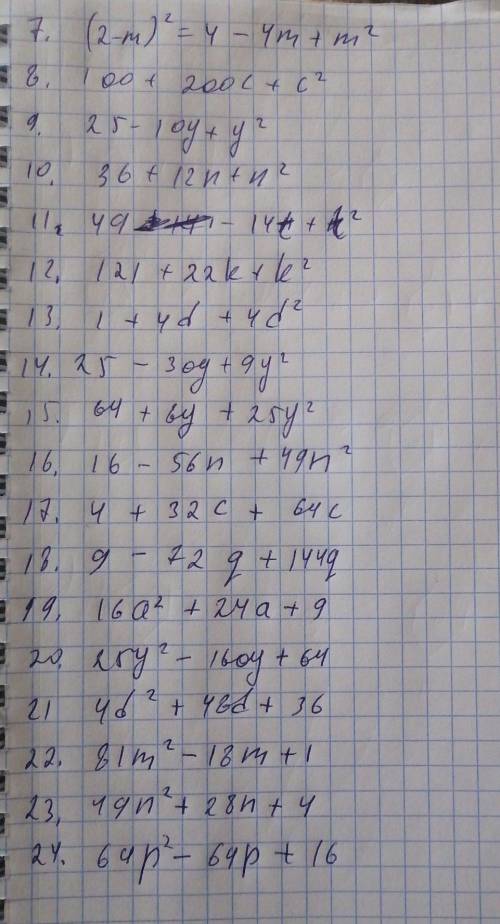 7. (2-m)² = 4 - 4m + m²
8. 100 + 200c + c²
9. 25 - 10y + y²
10. 36 + 12n + n²
11. 49 - 14t + t²
12. 121 + 22k + k²
13. 1 + 4d + 4d²
14. 25 - 30y + 9y²
15. 64 + 6y + 25y²
16. 16 - 56n + 49n²
17. 4 + 32c + 64c
18. 9 - 72q + 144q
19. 16a² + 24a + 9
20. 25y² - 160y + 64
21 4d² + 48d + 36
22. 81m² - 18m + 1
23. 49n² + 28n + 4
24. 64p² - 64p + 16